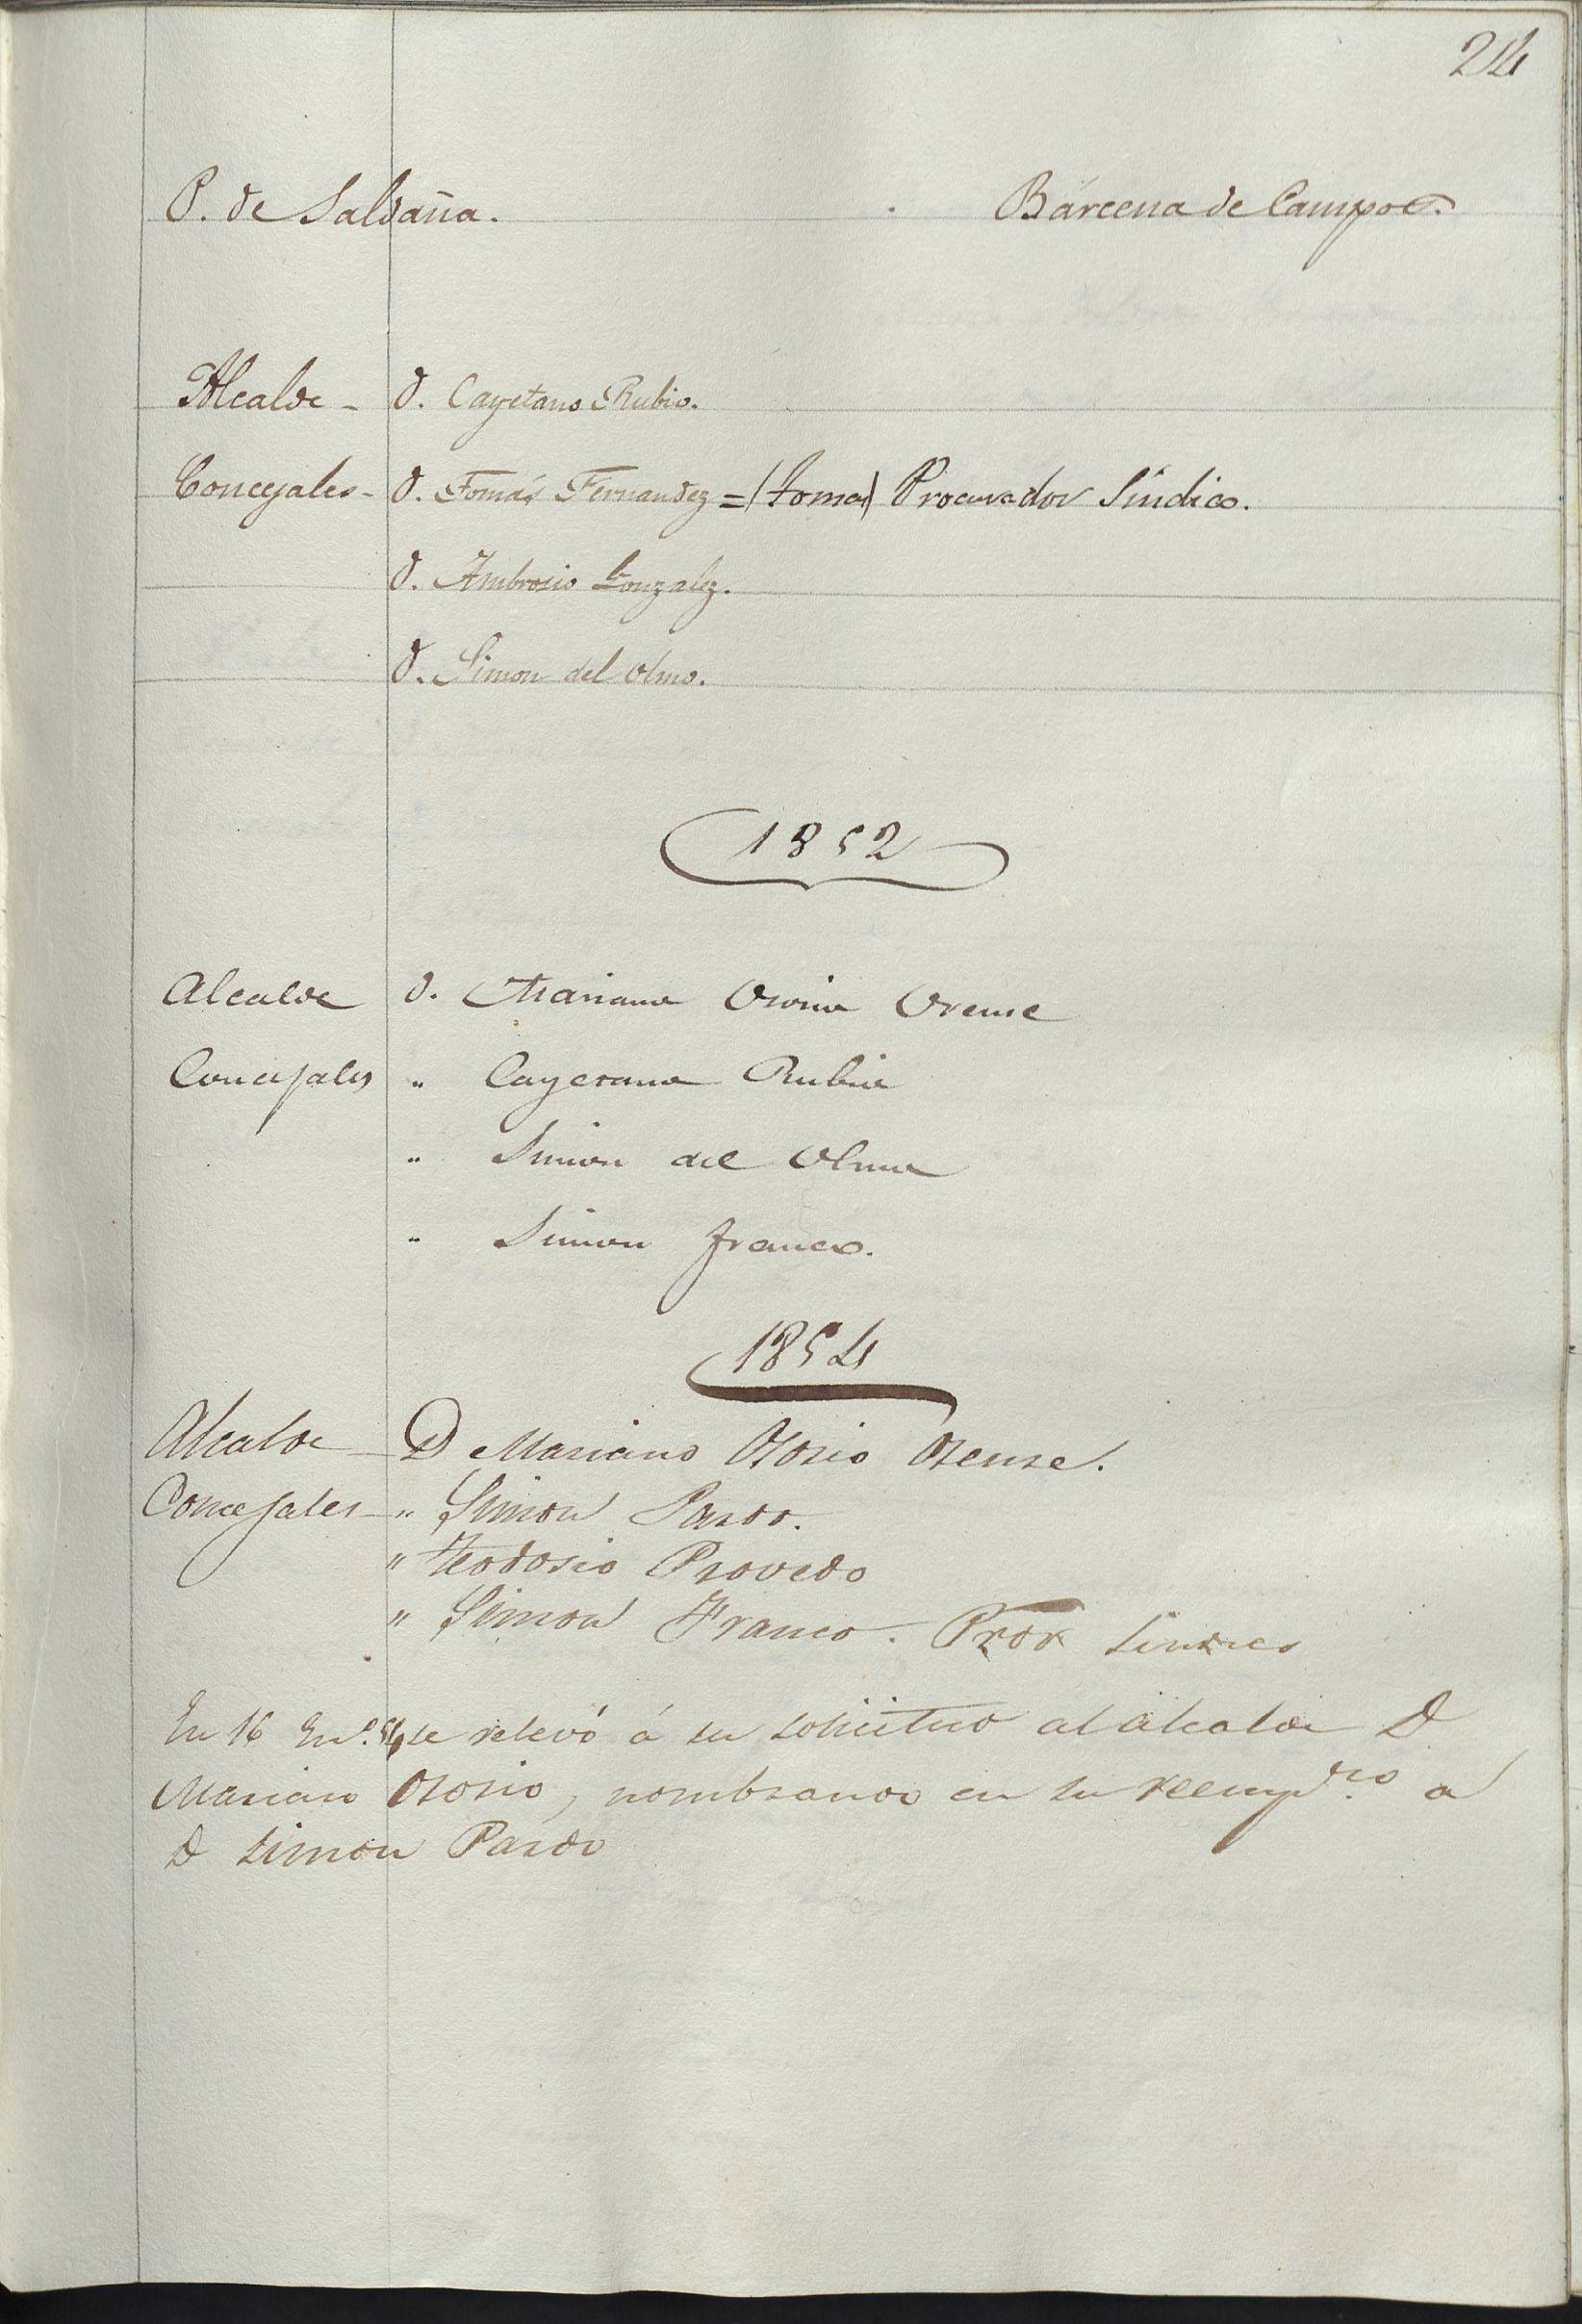 24
P. de Saldaña. Bárcena de Campos.
Alcalde - D. Cayetano Rubio.
Concejales - D. Tomás Fernandez = (toma) Procurador Síndico.
D. Ambrosio Gonzalez.
D. Simon del Olmo.
1852
Alcalde D. Mariano Osorio Orense
Concejales " Cayetano Rubio
" Simon del Olmo
" Simon Franco.
1854
Alcalde - D Mariano Osorio Orense.
Concejales - " Simon Pardo.
" Teodosio Provedo
" Simon Franco. Pror Sindico
En 16 En.º 54 se relevó á su solicitud al Alcalde D
Mariano Osorio, nombrando en su reempzo. a
D Simon Pardo